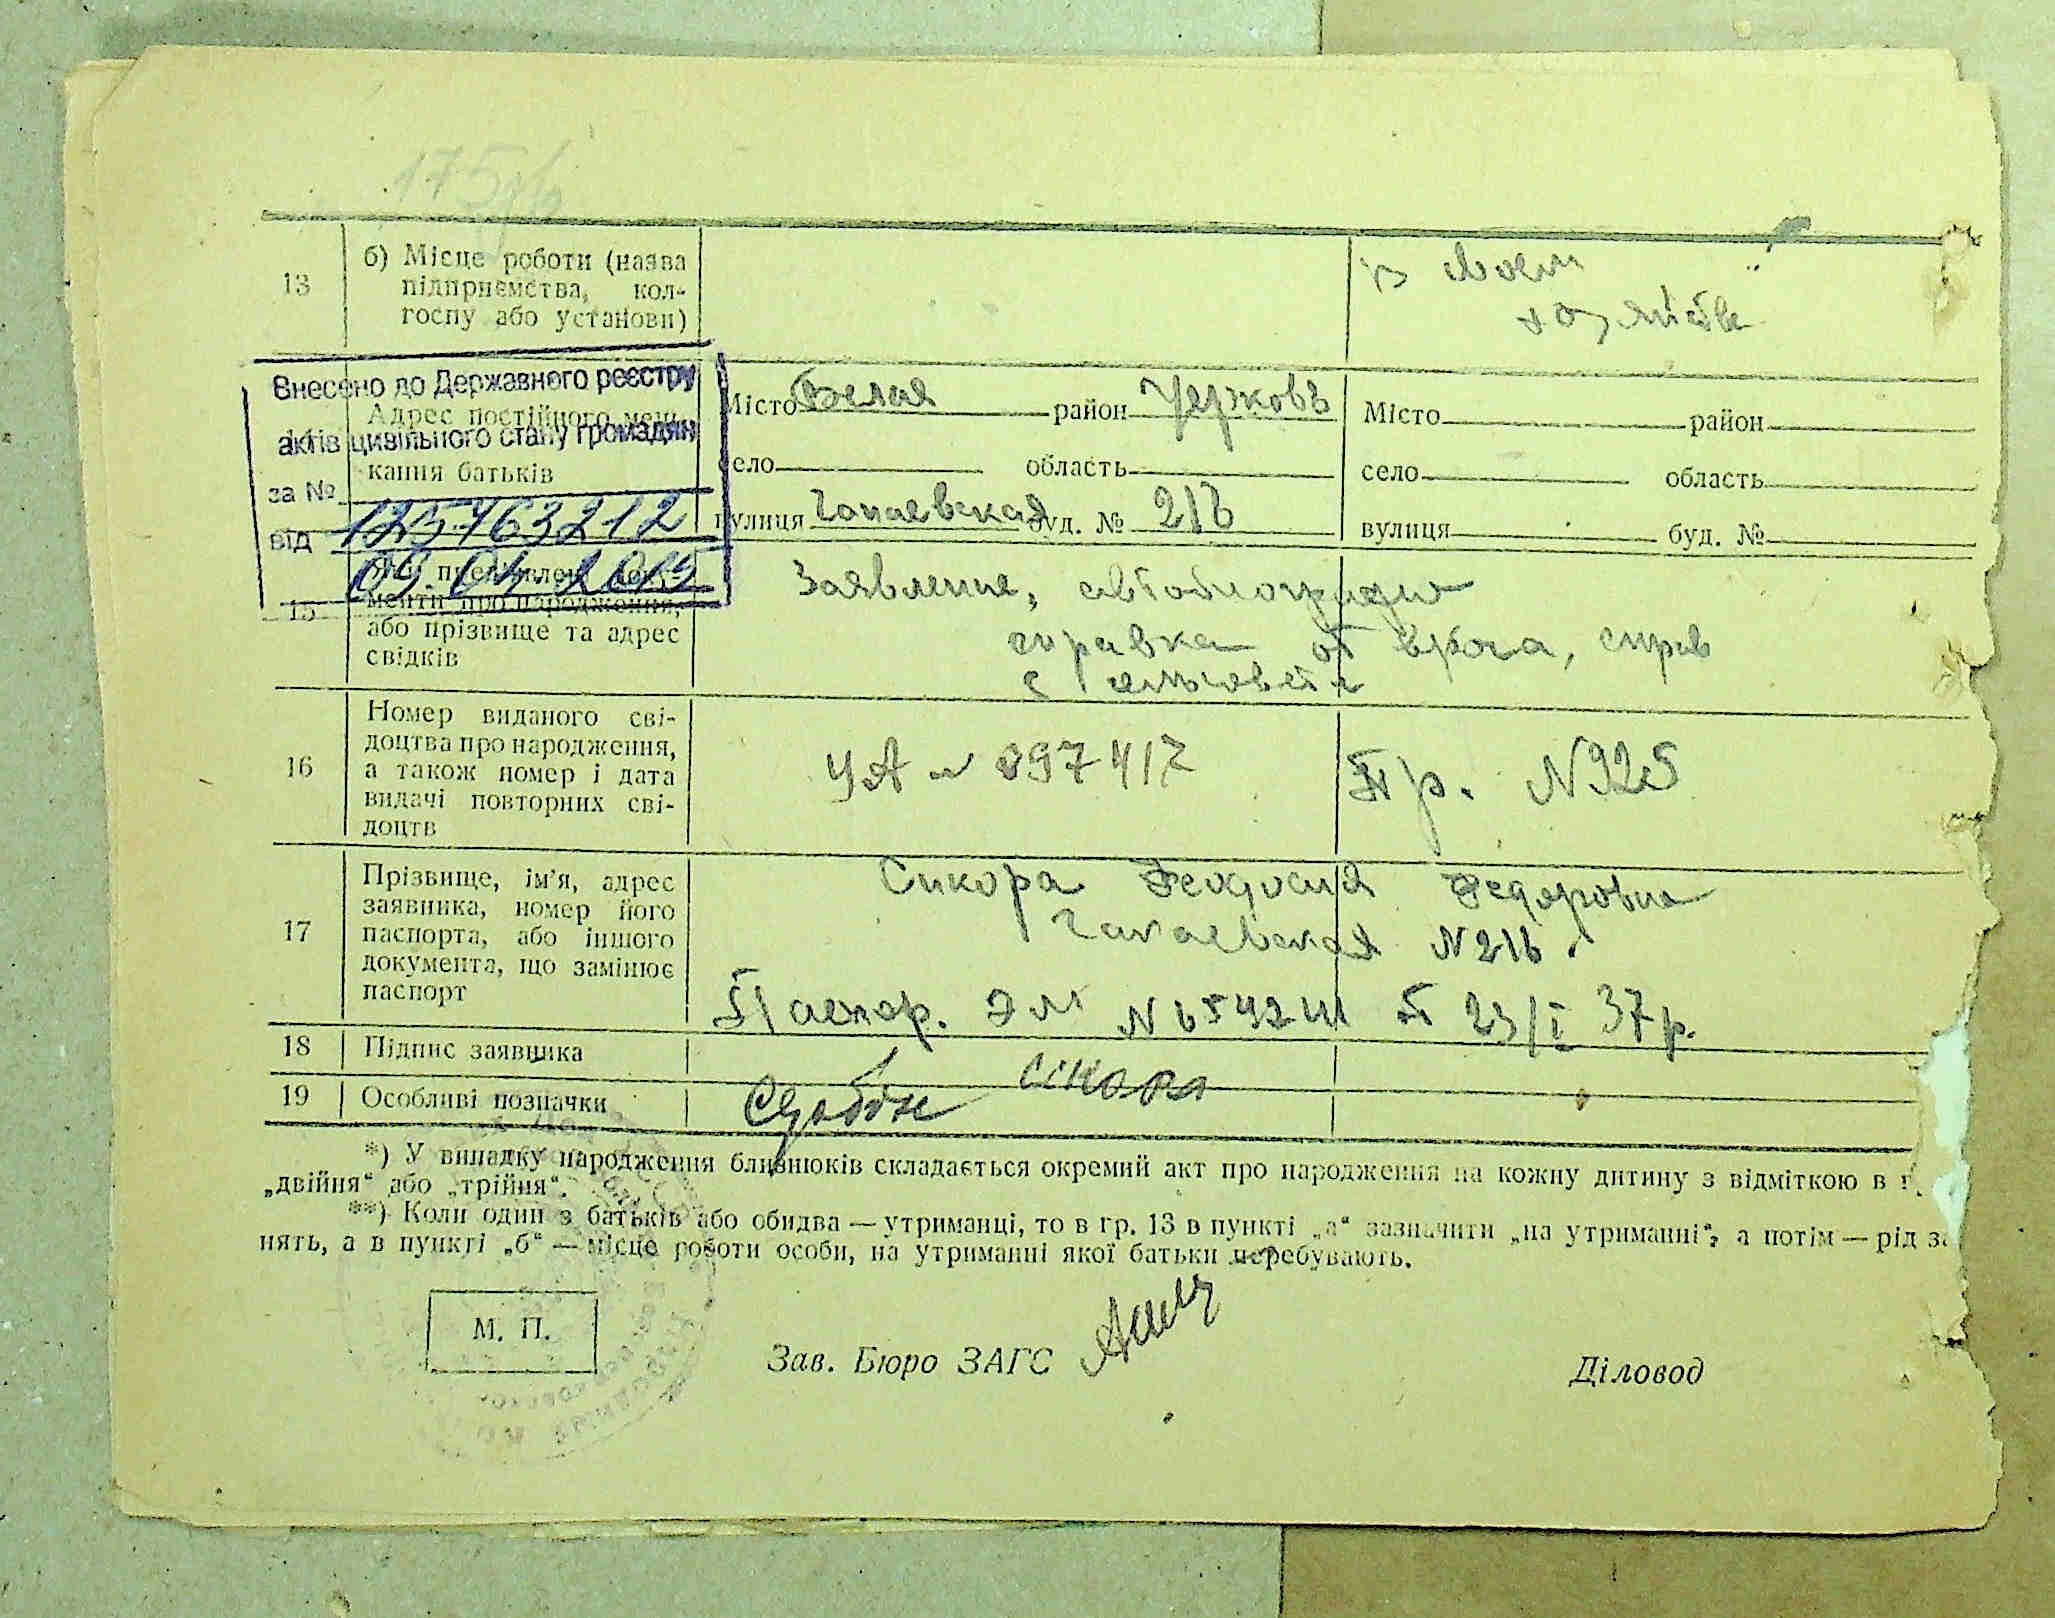 175
13
б) Місце роботи (назва
підприємства, кол-
госпу або установи)
в своем
хозяйстве
Внесено до Державного реєстру
актів цивільного стану громадян
за № 125763212
від 09 04 2015
14
Адрес постійного меш-
кання батьків
Місто Белая район Церковь
село область
вулиця Чапаевская буд. № 21б
Місто район
село область
вулиця буд. №
15
менти про народження,
або прізвище та адрес
свідків
Заявление, автобиография
справка от врача, справ
с сельсовета
16
Номер виданого сві-
доцтва про народження,
а також номер і дата
видачі повторних сві-
доцтв
УА № 097417
Пр. № 925
17
Прізвище, ім'я, адрес
заявника, номер його
паспорта, або іншого
документа, що замінює
паспорт
Сикора Феодосия Федоровна
Чапаевская № 21б
Паспор. № 23/I 37р.
18
Підпис заявника
Сікора
19
Особливі позначки
*) У випадку народження близнюків складається окремий акт про народження на кожну дитину з відміткою в г
„двійня“ або „трійня“.
**) Коли один з батьків або обидва — утриманці, то в гр. 13 в пункті „а“ зазначити „на утриманні“, а потім — рід за
нять, а в пункті „б“ — місце роботи особи, на утриманні якої батьки перебувають.
М. П.
Зав. Бюро ЗАГС
Діловод